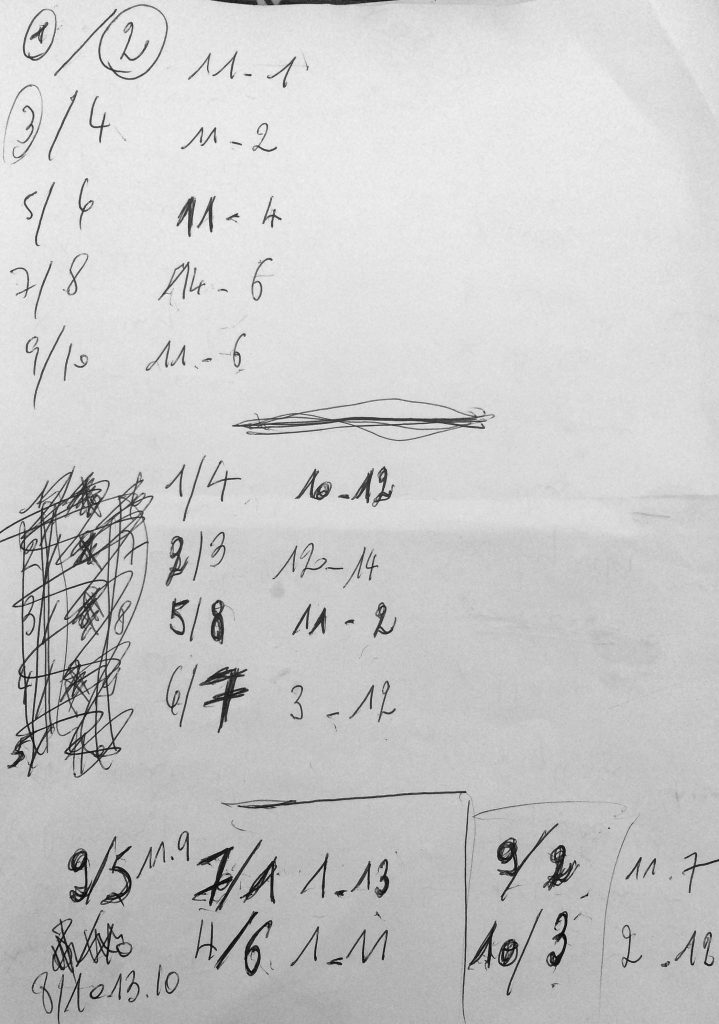 1 / 2 11 - 1
3 / 4 11 - 2
5 / 6 11 - 4
7 / 8 14 - 6
9 / 10 11 - 6
1 / 4 10 - 12
2 / 3 12 - 14
5 / 8 11 - 2
6 / 7 3 - 12
9 / 5 11.9 7 / 1 1 - 13 9 / 2 11.7
4 / 6 1 - 11 10 / 3 2 - 12
8 / 10 13.10